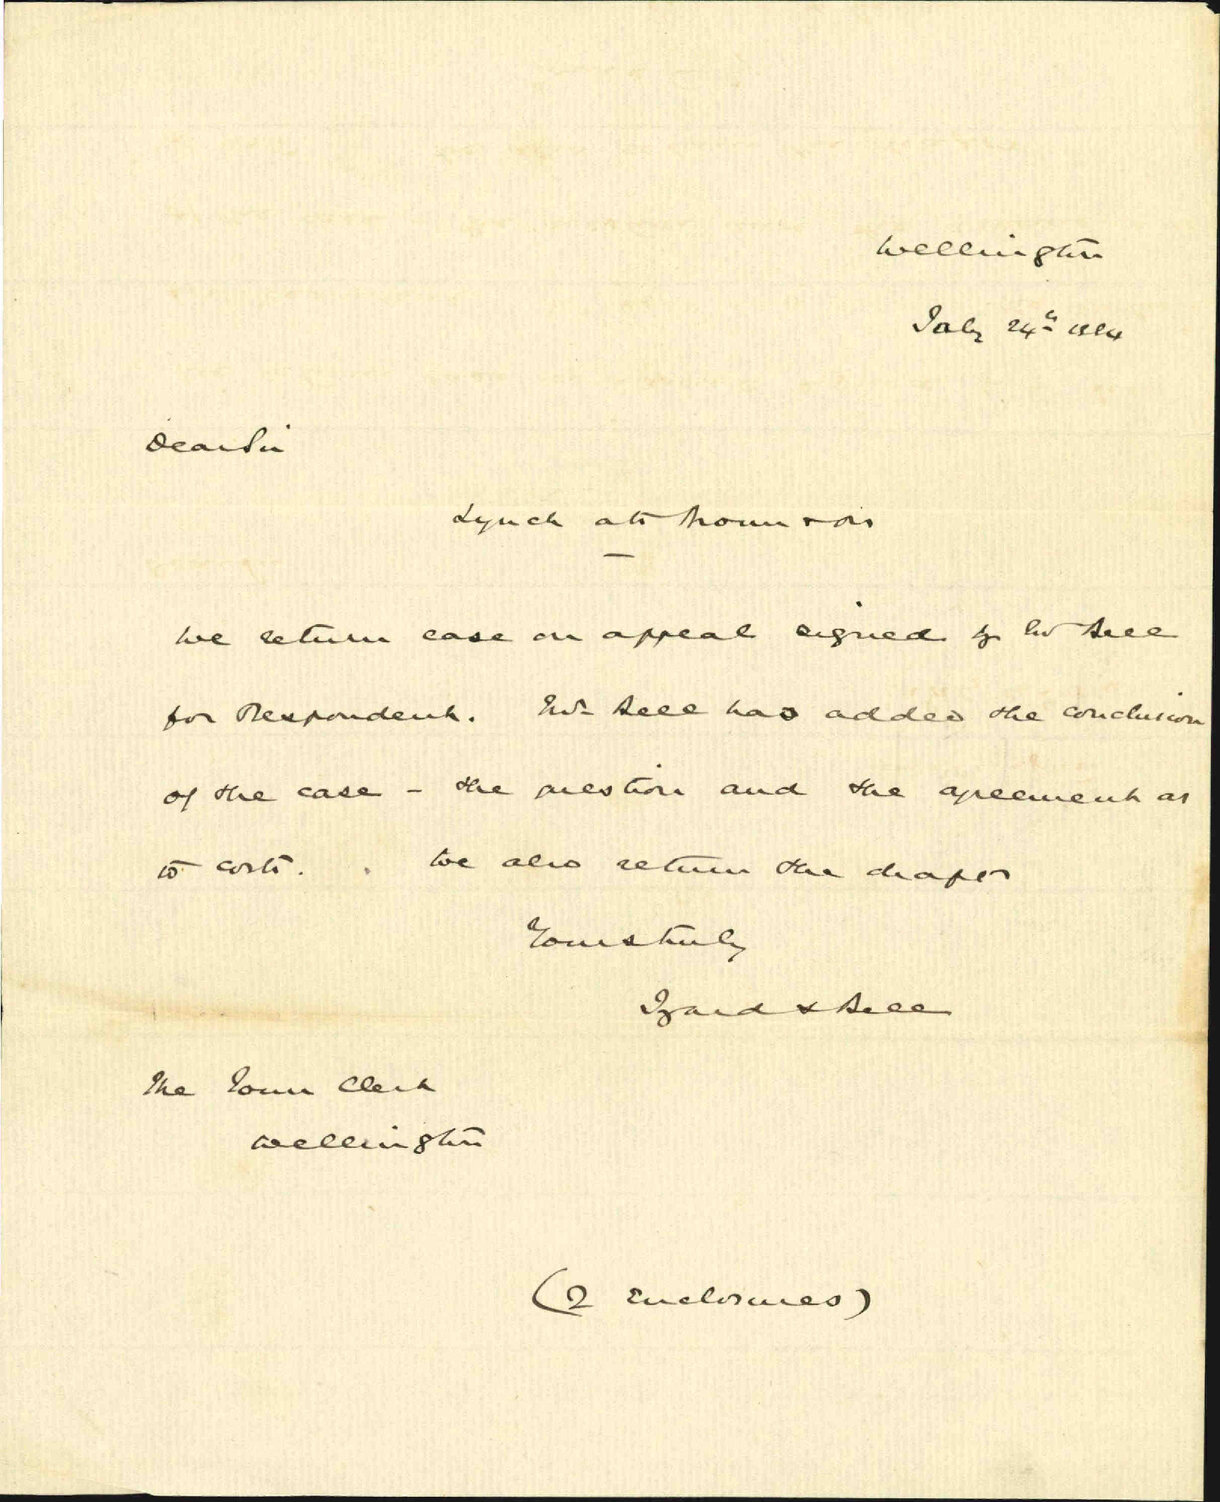 Wellington
July 24th 1884
Dear Sir
Lynch ats
We return case on appeal signed by Mr Bell
for Respondent. Mr Bell has added the conclusion
of the case - the question and the agreement as
to costs. We also return the draft
Yours truly
Izard & Bell
The Town Clerk
Wellington
(2 Enclosures)